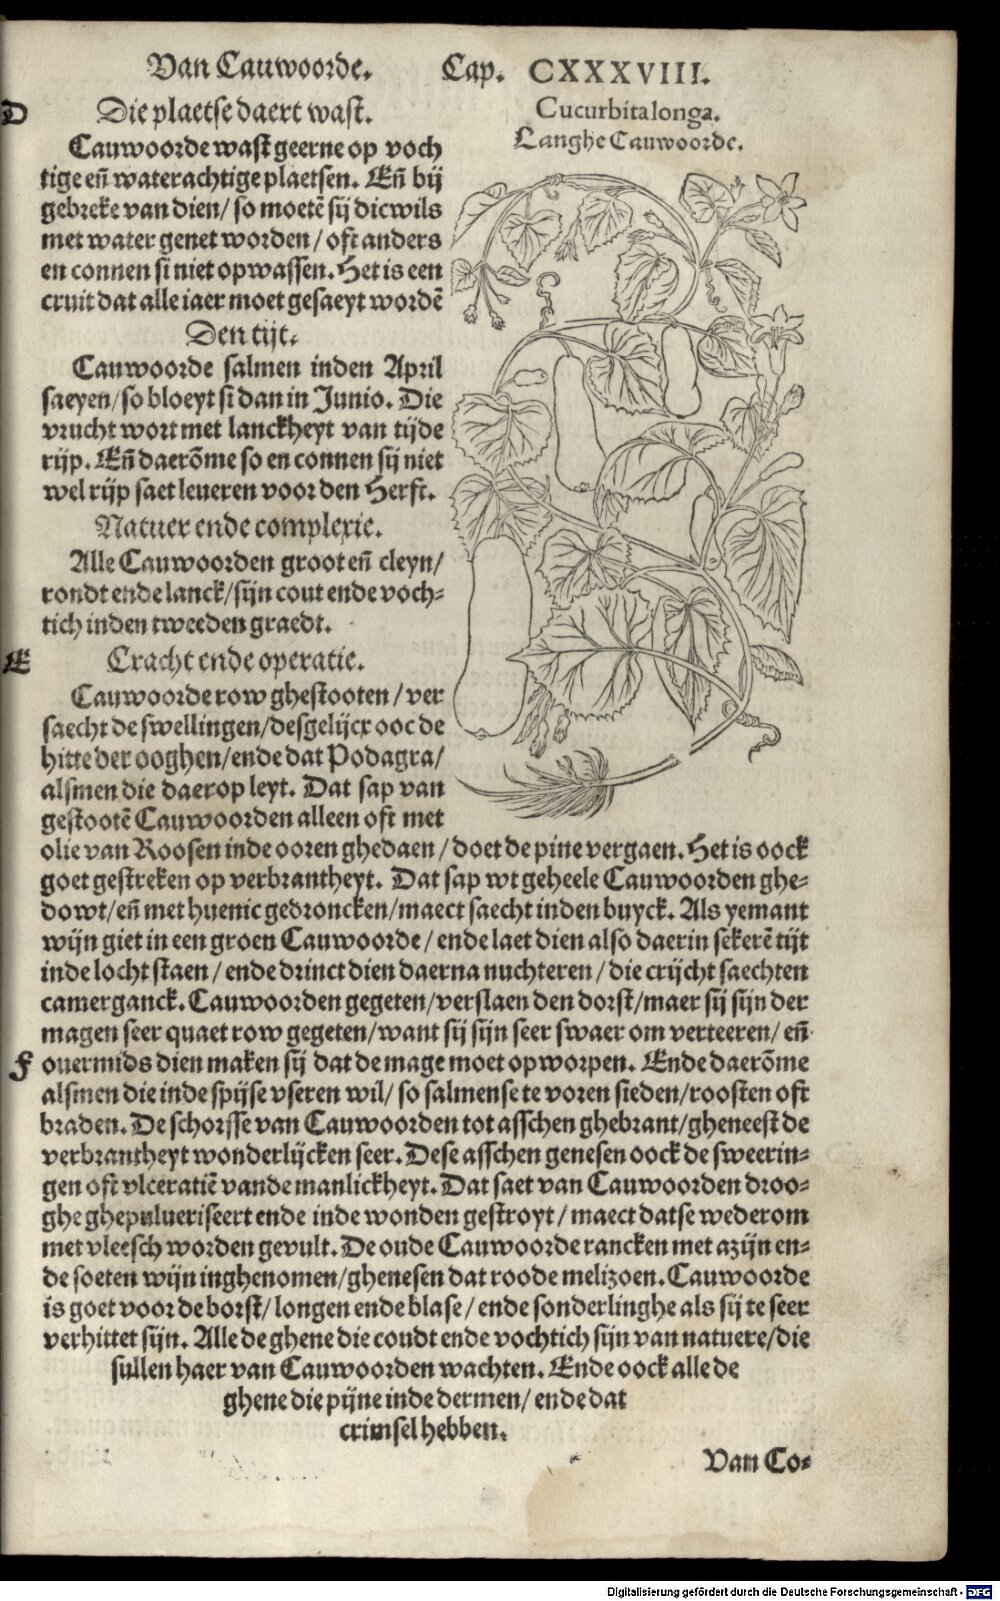 Van Cauwoorde. Cap. CXXXVIII.
D Die plaetse daert wast.
Cauwoorde wast geerne op voch
tige eñ waterachtige plaetsen. Eñ bij
gebreke van dien/ so moetē sij dicwils
met water genet worden/ oft anders
en connen si niet opwassen. Het is een
cruit dat alle iaer moet gesaeyt wordē
Den tijt.
Cauwoorde salmen inden April
saeyen/ so bloeyt si dan in Junio. Die
vrucht wort met lanckheyt van tijde
rijp. Eñ daerōme so en connen sij niet
wel rijp saet leueren voor den Herfst.
Natuer ende complexie.
Alle Cauwoorden groot eñ cleyn/
rondt ende lanck/ sijn cout ende voch-
tich inden tweeden graedt.
E Cracht ende operatie.
Cauwoorde row ghestooten/ ver
saecht de swellingen/ desgelijcx ooc de
hitte der ooghen/ ende dat Podagra/
alsmen die daer op leyt. Dat sap van
gestootē Cauwoorden alleen oft met
Cucurbita longa.
Langhe Cauwoorde.
olie van Roosen inde ooren ghedaen/ doet de pine vergaen. Het is oock
goet gestreken op verbrantheyt. Dat sap wt geheele Cauwoorden ghe-
dowt/ eñ met huenic gedroncken/ maect saecht inden buyck. Als yemant
wijn giet in een groen Cauwoorde/ ende laet dien also daer in sekerē tijt
inde locht staen/ ende drinct dien daer na nuchteren/ die crijcht saechten
camerganck. Cauwoorden gegeten/ verslaen den dorst/ maer sij sijn der
magen seer quaet row gegeten/ want sij sijn seer swaer om verteeren/ eñ
F ouermids dien maken sij dat de mage moet opworpen. Ende daerōme
alsmen die inde spijse vseren wil/ so salmense te voren sieden/ roosten oft
braden. De schorsse van Cauwoorden tot asschen ghebrant/ gheneest de
verbrantheyt wonderlijcken seer. Dese asschen genesen oock de sweerin-
gen oft vlceratiē vande manlickheyt. Dat saet van Cauwoorden droo-
ghe ghepulueriseert ende inde wonden gestroyt/ maect datse wederom
met vleesch worden gevult. De oude Cauwoorde rancken met azijn en-
de soeten wijn inghenomen/ ghenesen dat roode melizoen. Cauwoorde
is goet voor de borst/ longen ende blase/ ende sonderlinghe als sij te seer
verhittet sijn. Alle de ghene die coudt ende vochtich sijn van natuere/ die
sullen haer van Cauwoorden wachten. Ende oock alle de
ghene die pijne inde dermen/ ende dat
crimsel hebben.
Van Co-
Digitalisierung gefördert durch die Deutsche Forschungsgemeinschaft - DFG